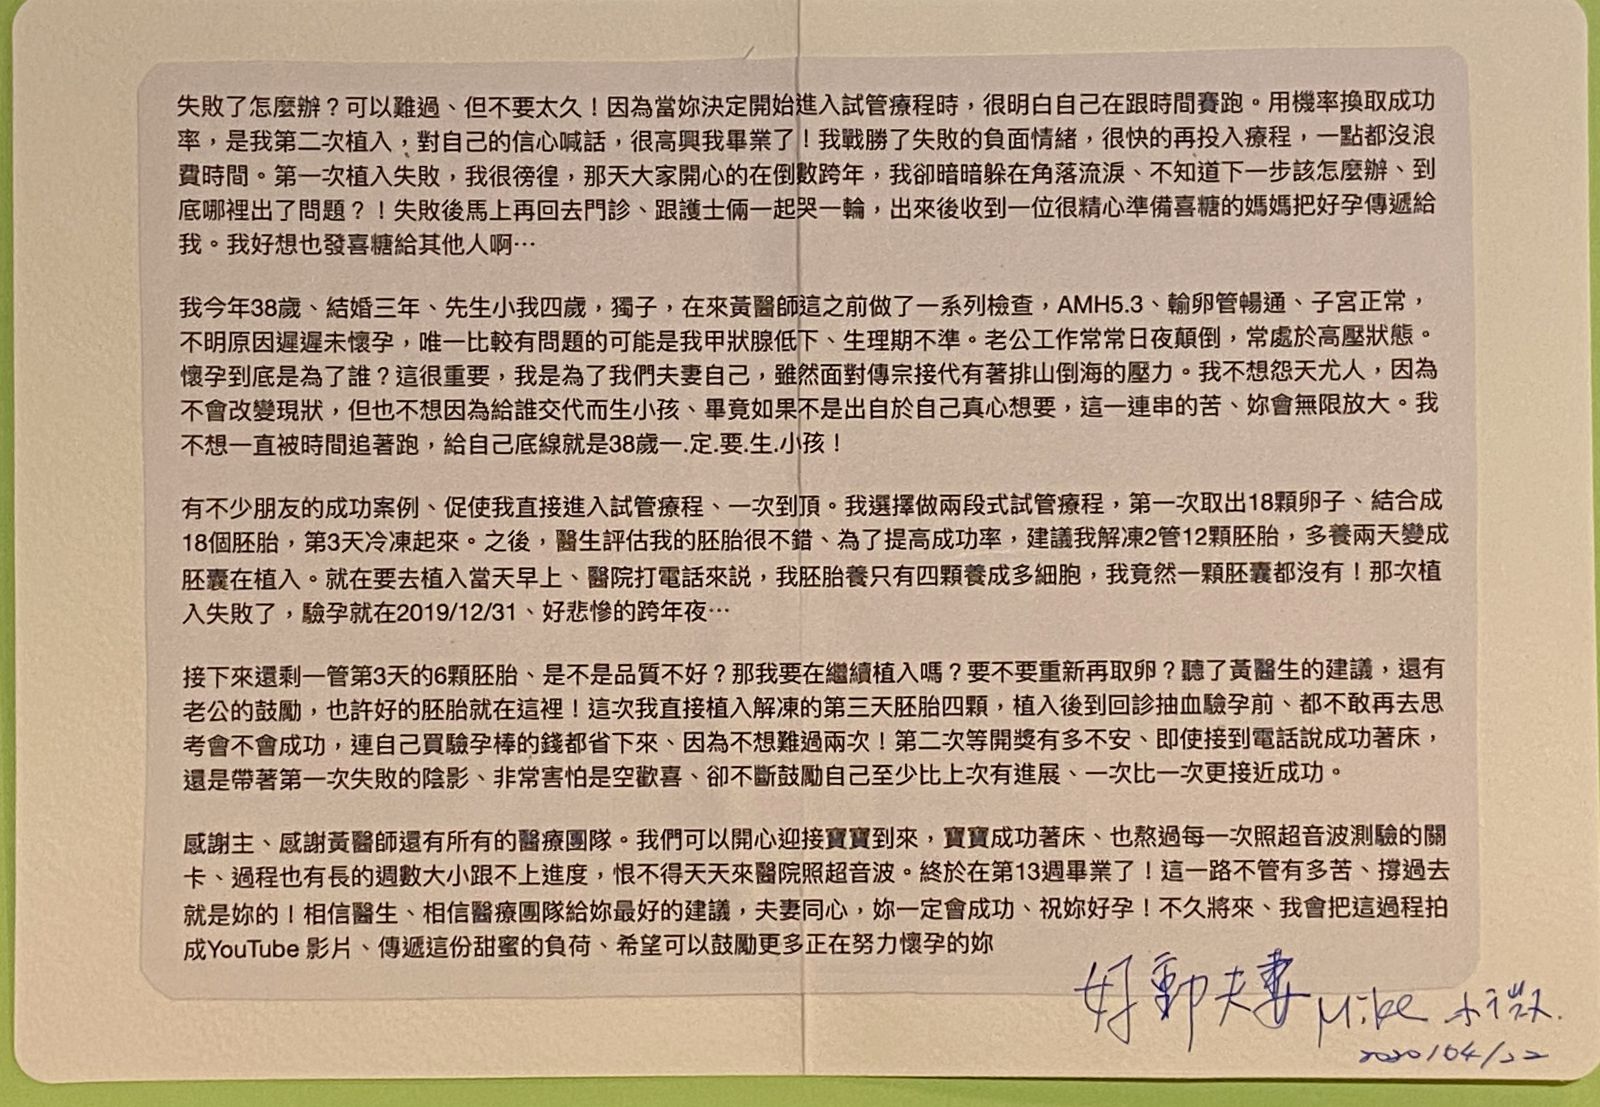 失敗了怎麼辦？可以難過、但不要太久！因為當妳決定開始進入試管療程時，很明白自己在跟時間賽跑。用機率換取成功
率，是我第二次植入，對自己的信心喊話，很高興我畢業了！我戰勝了失敗的負面情緒，很快的再投入療程，一點都沒浪
費時間。第一次植入失敗，我很徬徨，那天大家開心的在倒數跨年，我卻暗暗躲在角落流淚、不知道下一步該怎麼辦、到
底哪裡出了問題？！失敗後馬上再回去門診、跟護士倆一起哭一輪，出來後收到一位很精心準備喜糖的媽媽把好孕傳遞給
我。我好想也發喜糖給其他人啊⋯
我今年38歲、結婚三年、先生小我四歲，獨子，在來黃醫師這之前做了一系列檢查，AMH5.3、輸卵管暢通、子宮正常，
不明原因遲遲未懷孕，唯一比較有問題的可能是我甲狀腺低下、生理期不準。老公工作常常日夜顛倒，常處於高壓狀態。
懷孕到底是為了誰？這很重要，我是為了我們夫妻自己，雖然面對傳宗接代有著排山倒海的壓力。我不想怨天尤人，因為
不會改變現狀，但也不想因為給誰交代而生小孩、畢竟如果不是出自於自己真心想要，這一連串的苦、妳會無限放大。我
不想一直被時間追著跑，給自己底線就是38歲一.定.要.生.小孩！
有不少朋友的成功案例、促使我直接進入試管療程、一次到頂。我選擇做兩段式試管療程，第一次取出18顆卵子、結合成
18個胚胎，第3天冷凍起來。之後，醫生評估我的胚胎很不錯、為了提高成功率，建議我解凍2管12顆胚胎，多養兩天變成
胚囊在植入。就在要去植入當天早上、醫院打電話來說，我胚胎養只有四顆養成多細胞，我竟然一顆胚囊都沒有！那次植
入失敗了，驗孕就在2019/12/31、好悲慘的跨年夜⋯
接下來還剩一管第3天的6顆胚胎、是不是品質不好？那我要在繼續植入嗎？要不要重新再取卵？聽了黃醫生的建議，還有
老公的鼓勵，也許好的胚胎就在這裡！這次我直接植入解凍的第三天胚胎四顆，植入後到回診抽血驗孕前、都不敢再去思
考會不會成功，連自己買驗孕棒的錢都省下來、因為不想難過兩次！第二次等開獎有多不安、即使接到電話說成功著床，
還是帶著第一次失敗的陰影、非常害怕是空歡喜、卻不斷鼓勵自己至少比上次有進展、一次比一次更接近成功。
感謝主、感謝黃醫師還有所有的醫療團隊。我們可以開心迎接寶寶到來，寶寶成功著床、也熬過每一次照超音波測驗的關
卡、過程也有長的週數大小跟不上進度，恨不得天天來醫院照超音波。終於在第13週畢業了！這一路不管有多苦、撐過去
就是妳的！相信醫生、相信醫療團隊給妳最好的建議，夫妻同心，妳一定會成功、祝妳好孕！不久將來、我會把這過程拍
成YouTube 影片、傳遞這份甜蜜的負荷、希望可以鼓勵更多正在努力懷孕的妳
好動夫妻 Mike 小微.
2020/04/22